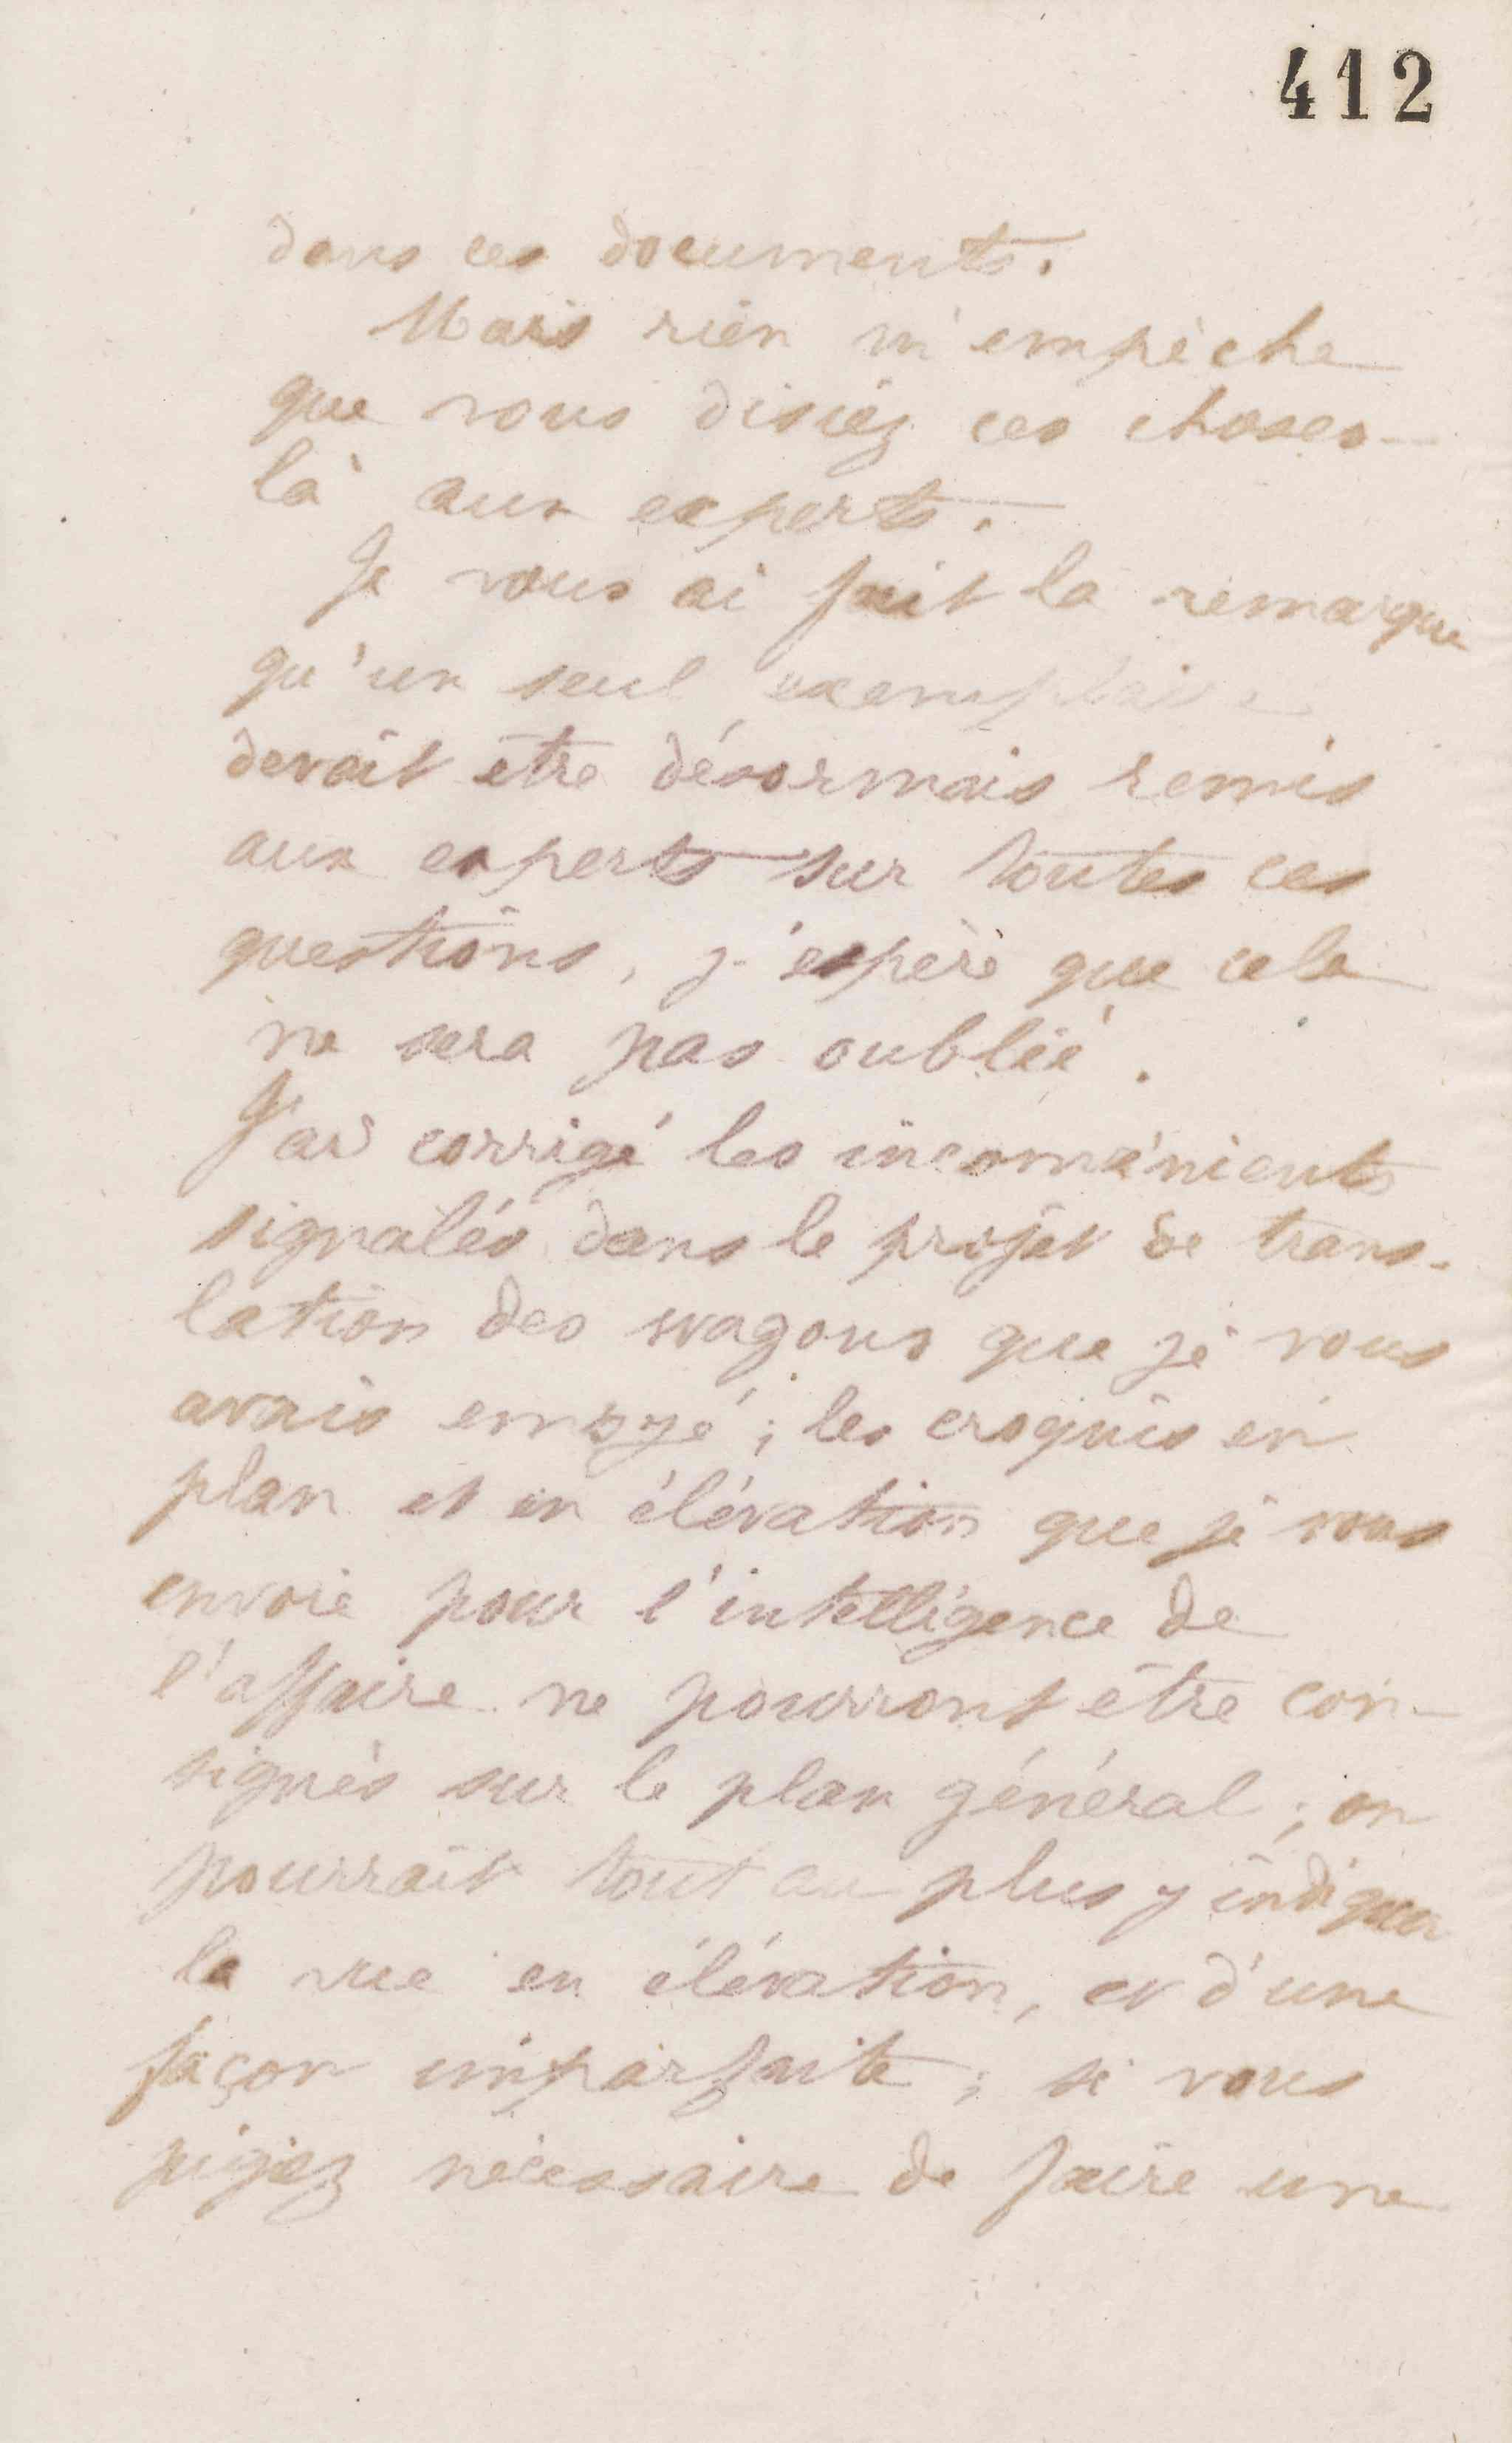 412
dans ces documents.
Mais rien n'empêche
que vous disiez ces choses-
là aux experts.
Je vous ai fait la remarque
qu'un seul exemplaire
devait être désormais remis
aux experts sur toutes ces
questions, j'espère que cela
ne sera pas oublié.
J'ai corrigé les inconvénients
signalés dans le projet de trans-
lation des wagons que je vous
avais envoyé; les croquis en
plan et en élévation que je vous
envoie pour l'intelligence de
l'affaire ne pourront être con-
signés sur le plan général; on
pourrait tout au plus y indiquer
la vue en élévation, et d'une
façon imparfaite; si vous
jugiez nécessaire de faire une